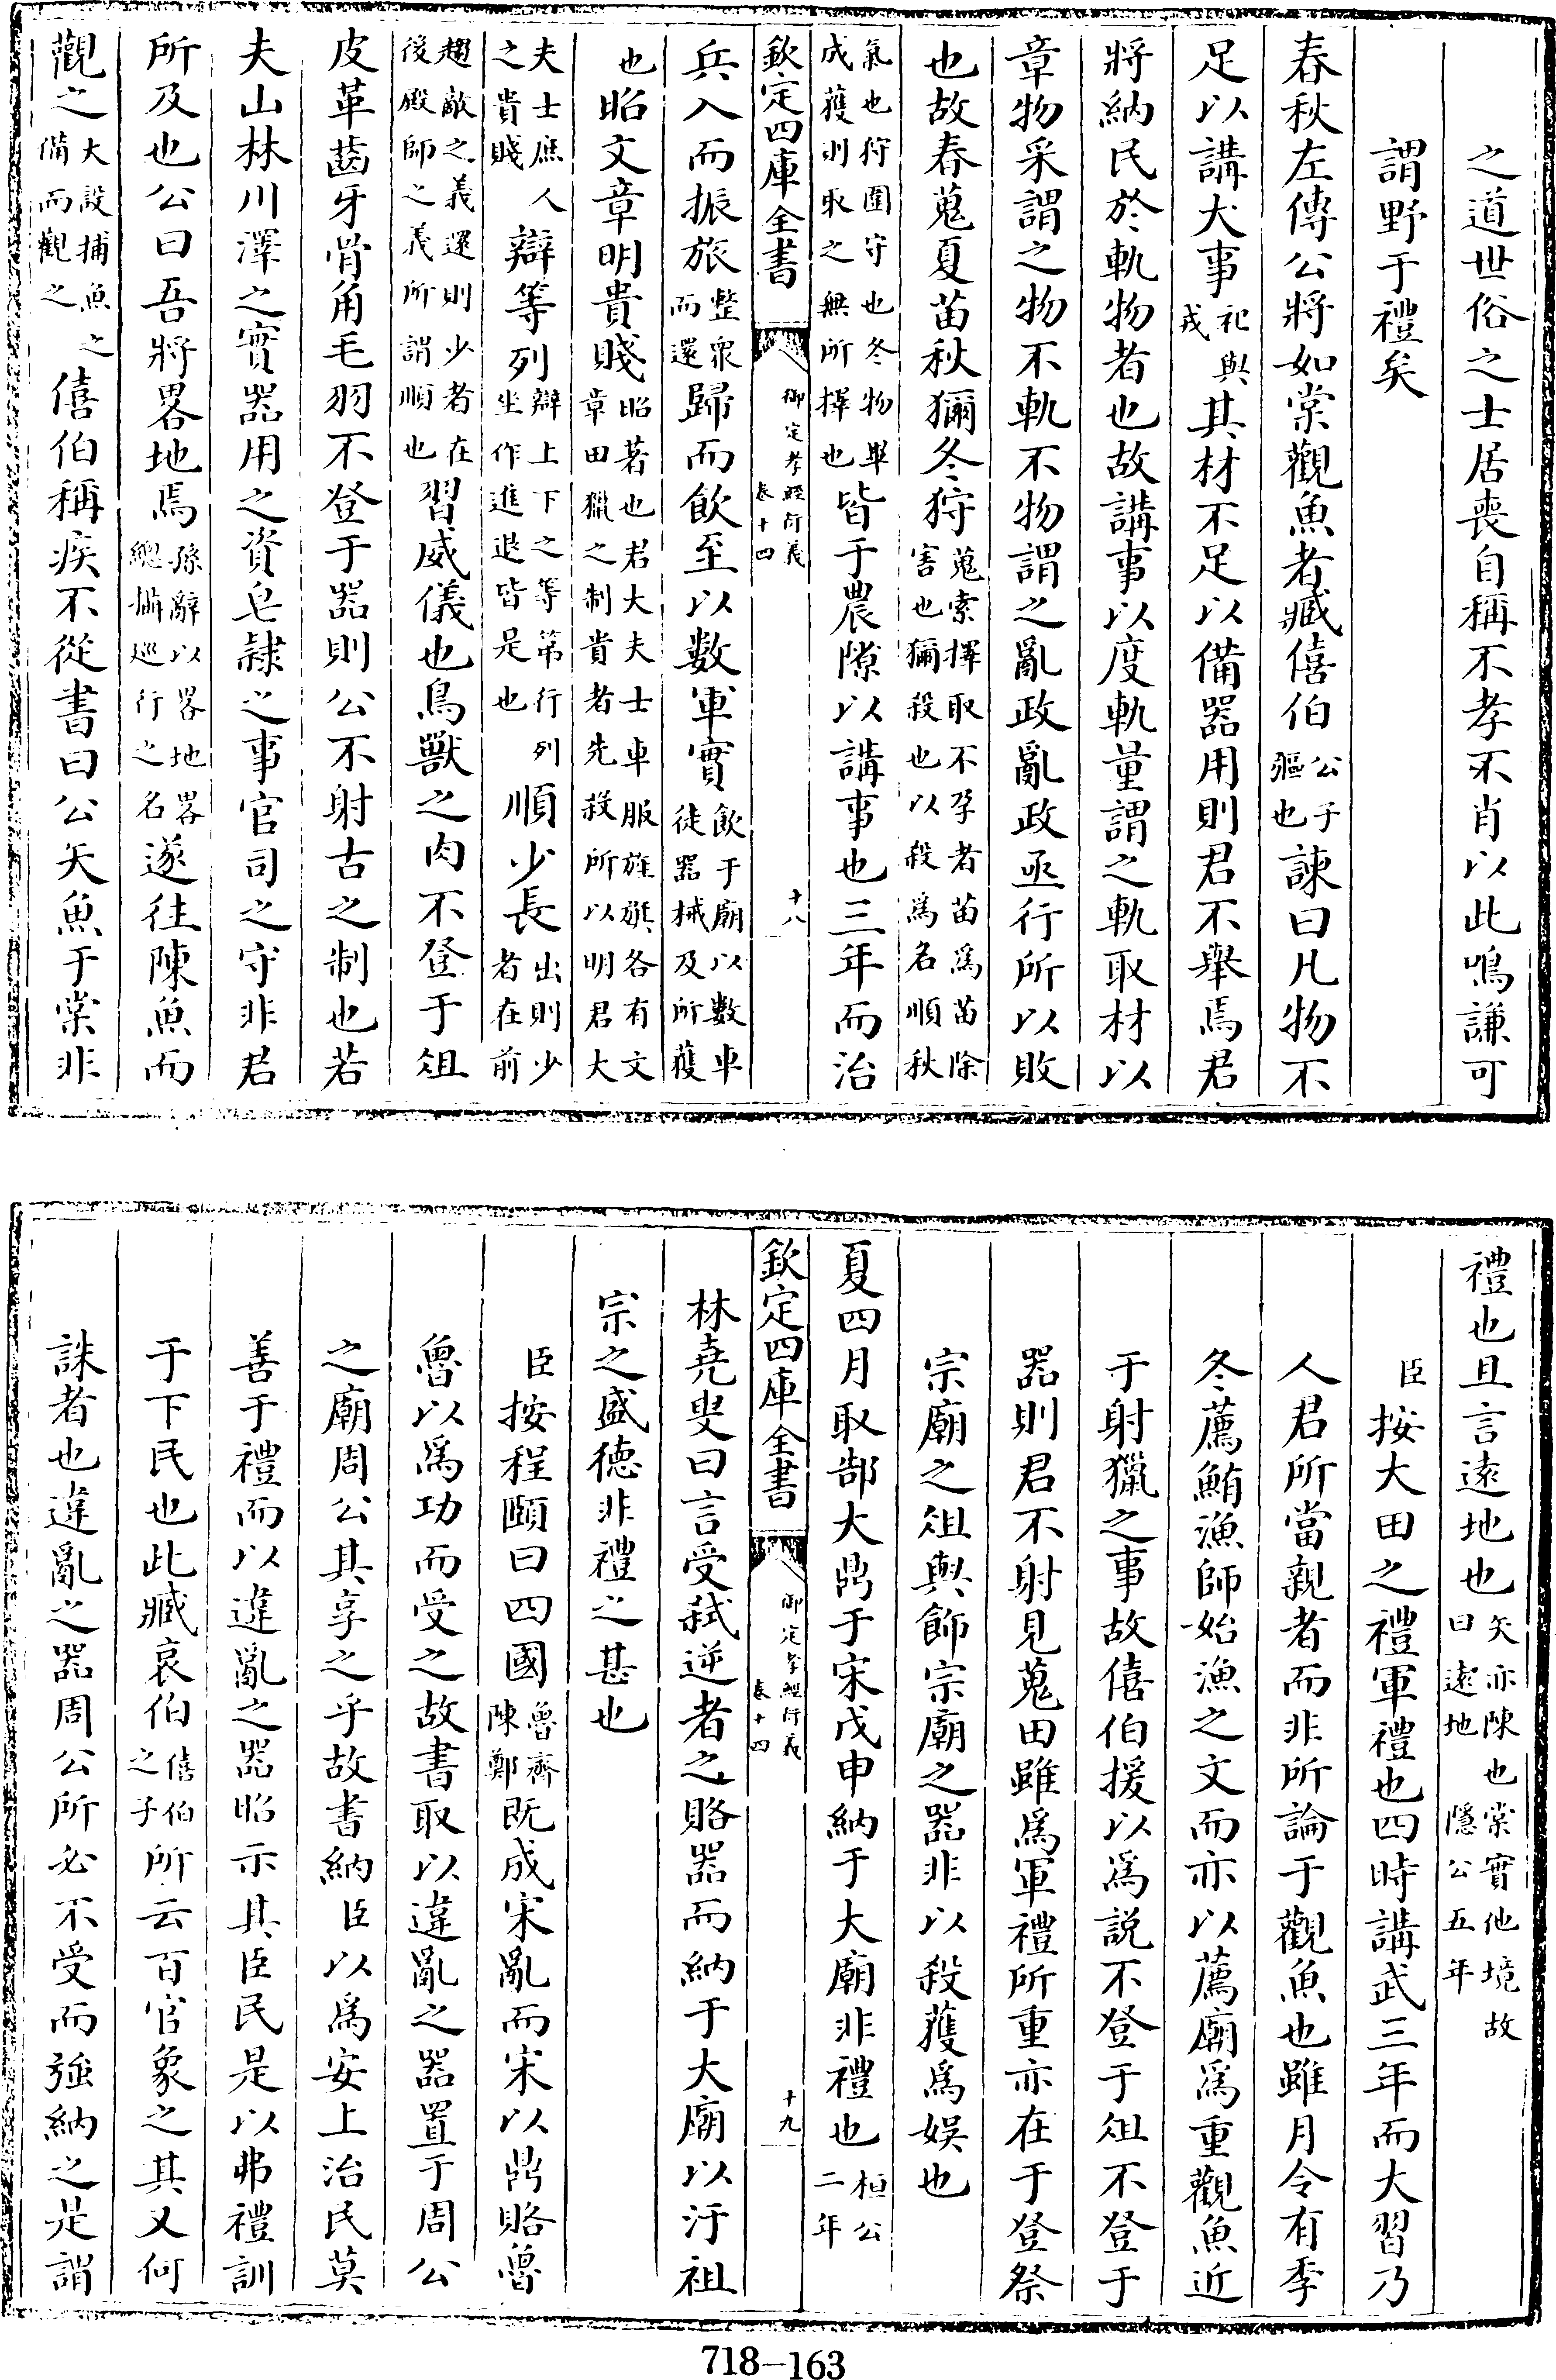 之道世俗之士居喪自稱不孝不肖以此鳴謙可
謂野于禮矣
春秋左傳公將如棠觀魚者臧僖伯公子彄也諫曰凡物不
足以講大事祀與戎其材不足以備器用則君不舉焉君
將納民於軌物者也故講事以度軌量謂之軌取材以
章物采謂之物不軌不物謂之亂政亂政亟行所以敗
也故春蒐夏苗秋獮冬狩蒐索擇取不孕者苗為苗除害也獮殺也以殺為名順秋
氣也狩圍守也冬物畢成獲則取之無所擇也皆于農隙以講事也三年而治
欽定四庫全書 御定孝經衍義 卷十四 十八
兵入而振旅整眾而還歸而飲至以數軍實飲于廟以數車徒器械及所獲
也昭文章明貴賤昭著也君大夫士車服旌旗各有文章田獵之制貴者先殺所以明君大
夫士庶人之貴賤辯等列辯上下之等第行列坐作進退皆是也順少長出則少者在前
趨敵之義還則少者在後殿師之義所謂順也習威儀也鳥獸之肉不登于俎
皮革齒牙骨角毛羽不登于器則公不射古之制也若
夫山林川澤之實器用之資皂隷之事官司之守非君
所及也公曰吾將畧地焉孫辭以畧地畧總攝巡行之名遂往陳魚而
觀之大設捕魚之備而觀之僖伯稱疾不從書曰公矢魚于棠非
禮也且言遠地也矢亦陳也棠實他境故曰遠地 隱公五年
臣按大田之禮軍禮也四時講武三年而大習乃
人君所當親者而非所論于觀魚也雖月令有季
冬薦鮪漁師始漁之文而亦以薦廟為重觀魚近
于射獵之事故僖伯援以為說不登于俎不登于
器則君不射見蒐田雖為軍禮所重亦在于登祭
宗廟之俎與飾宗廟之器非以殺獲為娛也
夏四月取郜大鼎于宋戊申納于大廟非禮也桓公二年
欽定四庫全書 御定孝經衍義 卷十四 十九
林堯叟曰言受弒逆者之賂器而納于大廟以汙祖
宗之盛德非禮之甚也
臣按程頤曰四國魯齊陳鄭既成宋亂而宋以鼎賂魯
魯以為功而受之故書取以違亂之器置于周公
之廟周公其享之乎故書納臣以為安上治民莫
善于禮而以違亂之器昭示其臣民是以弗禮訓
于下民也此臧哀伯僖伯之子所云百官象之其又何
誅者也違亂之器周公所必不受而強納之是謂
718-163